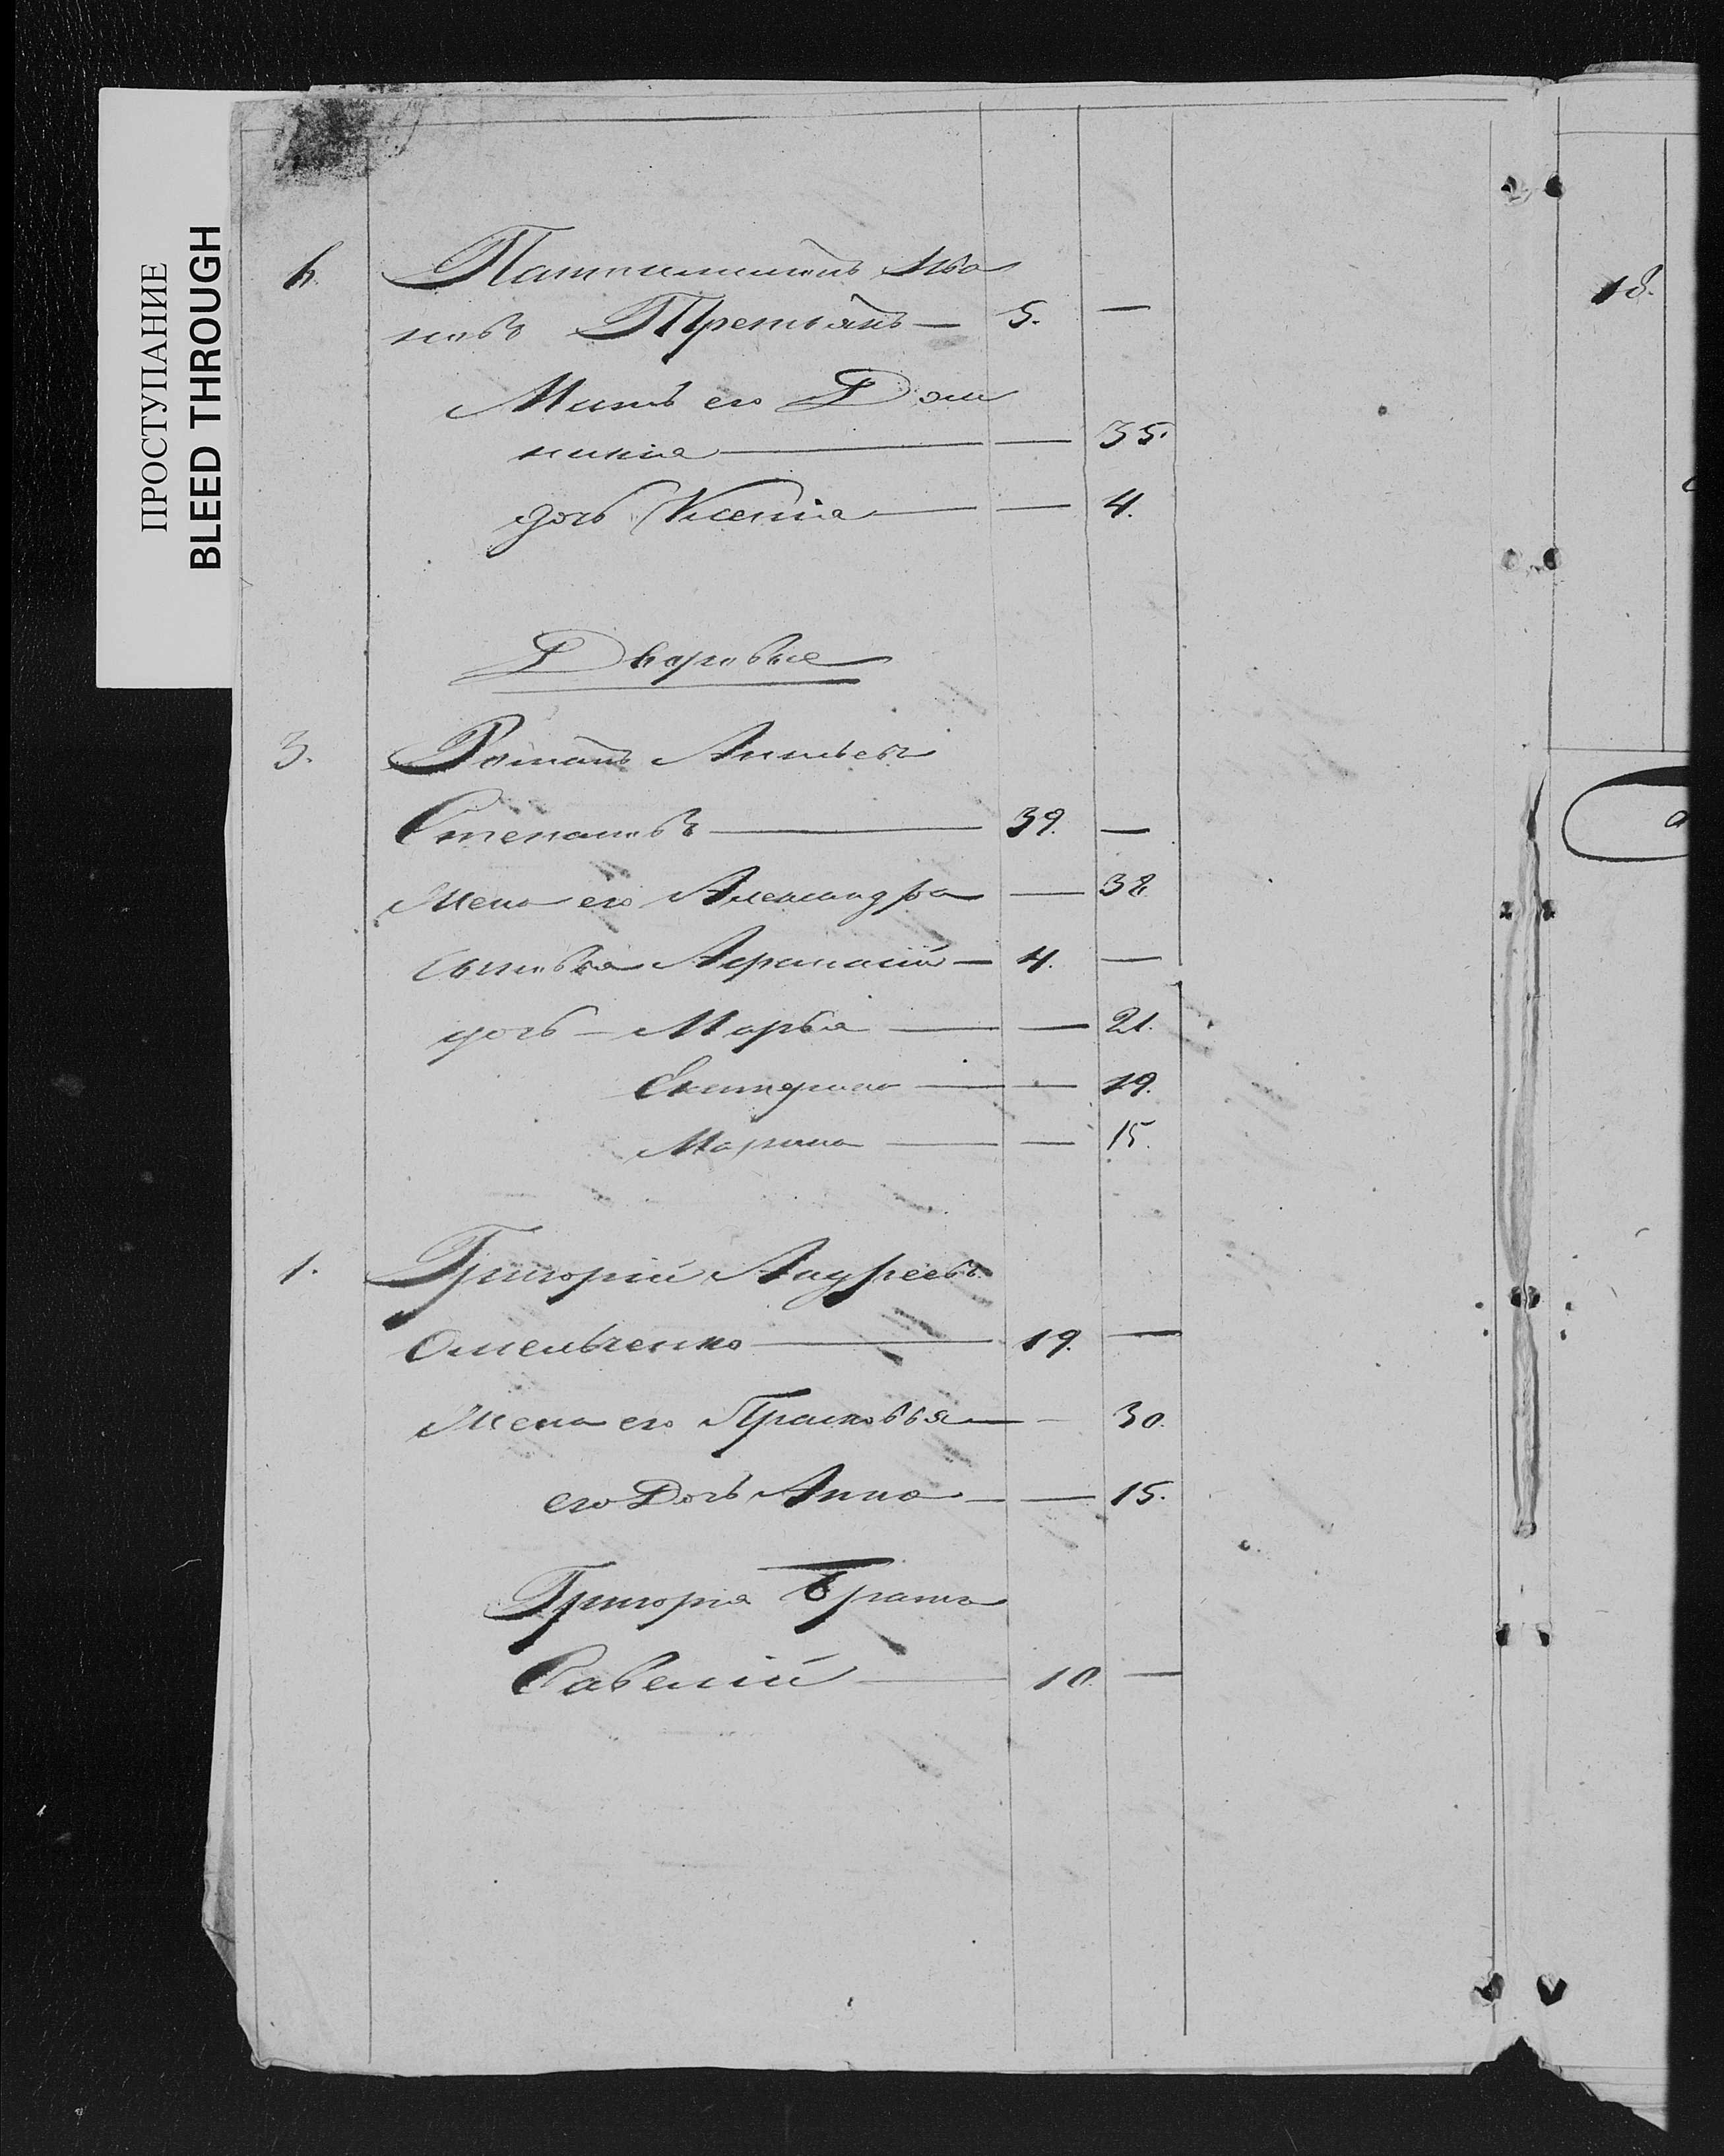 ПРОСТУПАНИЕ
BLEED THROUGH
6. Пантилимонъ Ива
новъ Третьякъ — 5. —
Мать его Дом
никия — — 35.
дочь Ксенія — — 4.
Дворовые
3. Романъ
Степановъ — 39. —
Жена его Александра — 38.
сыновья Афанасій — 4. —
дочь — Марья — — 21.
Екатерина — — 19.
Марина — — 15.
1. Григорій Андреевъ
Омельченко — 19. —
Жена его Прасковья — — 30.
его Дочь Анна — — 15.
Григорія Брать
Савелій — 10. —
18.